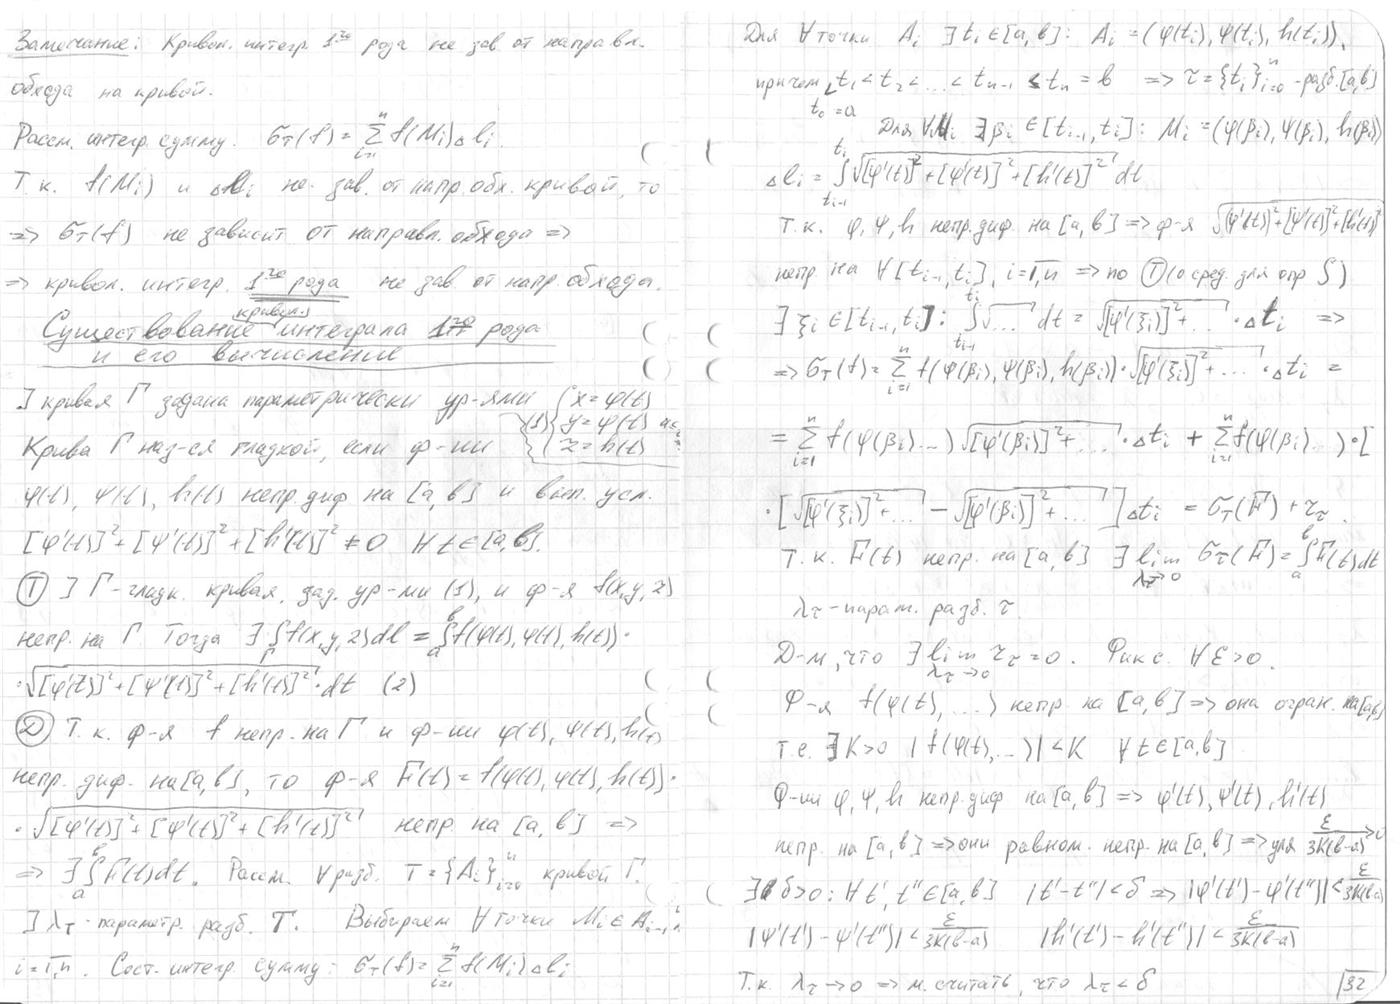 Замечание: Кривол. интегр. 1го рода не зав. от направл.
обхода на кривой.
Рассм. интегр. сумму. σ_T(f) = Σ_{i=1}^n f(M_i)Δl_i.
Т.к. f(M_i) и Δl_i не зав. от напр. обх. кривой, то
=> σ_T(f) не зависит от направл. обхода =>
=> кривол. интегр. 1го рода не зав. от напр. обхода.
Существование (кривол.) интеграла 1го рода
и его вычисление
] кривая Г задана параметрически ур-ями (1) { x = φ(t)
y = ψ(t)
z = h(t)
Крива Г наз-ся гладкой, если ф-ии
φ(t), ψ(t), h(t) непр. диф на [a, b] и вып. усл.
[φ'(t)]² + [ψ'(t)]² + [h'(t)]² ≠ 0 ∀t∈[a,b].
(Т) ] Г-гладк. кривая, зад. ур-ми (1), и ф-я f(x,y,z)
непр. на Г. Тогда ∃ ∫_Г f(x,y,z)dl = ∫_a^b f(φ(t), ψ(t), h(t))·
·√([φ'(t)]² + [ψ'(t)]² + [h'(t)]²)·dt (2)
(Д) Т.к. ф-я f непр. на Г и ф-ии φ(t), ψ(t), h(t)
непр. диф. на [a, b], то ф-я F(t) = f(φ(t), ψ(t), h(t))·
·√([φ'(t)]² + [ψ'(t)]² + [h'(t)]²) непр. на [a, b] =>
=> ∃ ∫_a^b F(t)dt. Рассм. ∀ разб. T = {A_i}_{i=0}^n кривой Г.
] λ_T - параметр. разб. T. Выбираем ∀ точки M_i ∈ A_{i-1}
i = 1,n. Сост. интегр. сумму: σ_T(f) = Σ_{i=1}^n f(M_i)Δl_i
Для ∀ точки A_i ∃ t_i ∈ [a, b]: A_i = (φ(t_i), ψ(t_i), h(t_i)),
причем t_0 = a < t_1 < t_2 < ... < t_{n-1} < t_n = b => τ = {t_i}_{i=0}^n - разб. [a,b]
Для ∀M_i ∃ β_i ∈ [t_{i-1}, t_i]: M_i = (φ(β_i), ψ(β_i), h(β_i))
Δl_i = ∫_{t_{i-1}}^{t_i} √([φ'(t)]² + [ψ'(t)]² + [h'(t)]²) dt
Т.к. φ, ψ, h непр. диф на [a, b] => ф-я √([φ'(t)]² + [ψ'(t)]² + [h'(t)]²)
непр. на ∀[t_{i-1}, t_i], i = 1,n => по (Т) (о сред. для опр ∫)
∃ ξ_i ∈ [t_{i-1}, t_i]: ∫_{t_{i-1}}^{t_i} √... dt = √([φ'(ξ_i)]² + ...)·Δt_i =>
=> σ_T(f) = Σ_{i=1}^n f(φ(β_i), ψ(β_i), h(β_i))·√([φ'(ξ_i)]² + ...)·Δt_i =
= Σ_{i=1}^n f(φ(β_i)...)√([φ'(β_i)]² + ...)·Δt_i + Σ_{i=1}^n f(φ(β_i)...)·[
·[√([φ'(ξ_i)]² + ...) - √([φ'(β_i)]² + ...)]Δt_i = σ_τ(F) + r_τ.
Т.к. F(t) непр. на [a, b] ∃ lim_{λ_τ→0} σ_τ(F) = ∫_a^b F(t)dt
λ_τ - парам. разб. τ.
Д-м, что ∃ lim_{λ_τ→0} r_τ = 0. Фикс. ∀ε>0.
Ф-я f(φ(t), ...) непр. на [a, b] => она огран. на [a,b]
т.е. ∃K>0 |f(φ(t), ...)| < K ∀t∈[a,b]
Ф-ии φ, ψ, h непр. диф на [a, b] => φ'(t), ψ'(t), h'(t)
непр. на [a, b] => они равном. непр. на [a, b] => для ε/(3K(b-a)) > 0
∃ δ>0: ∀ t', t'' ∈ [a, b] |t' - t''| < δ => |φ'(t') - φ'(t'')| < ε/(3K(b-a))
|ψ'(t') - ψ'(t'')| < ε/(3K(b-a)) |h'(t') - h'(t'')| < ε/(3K(b-a))
Т.к. λ_τ → 0 => м. считать, что λ_τ < δ
32